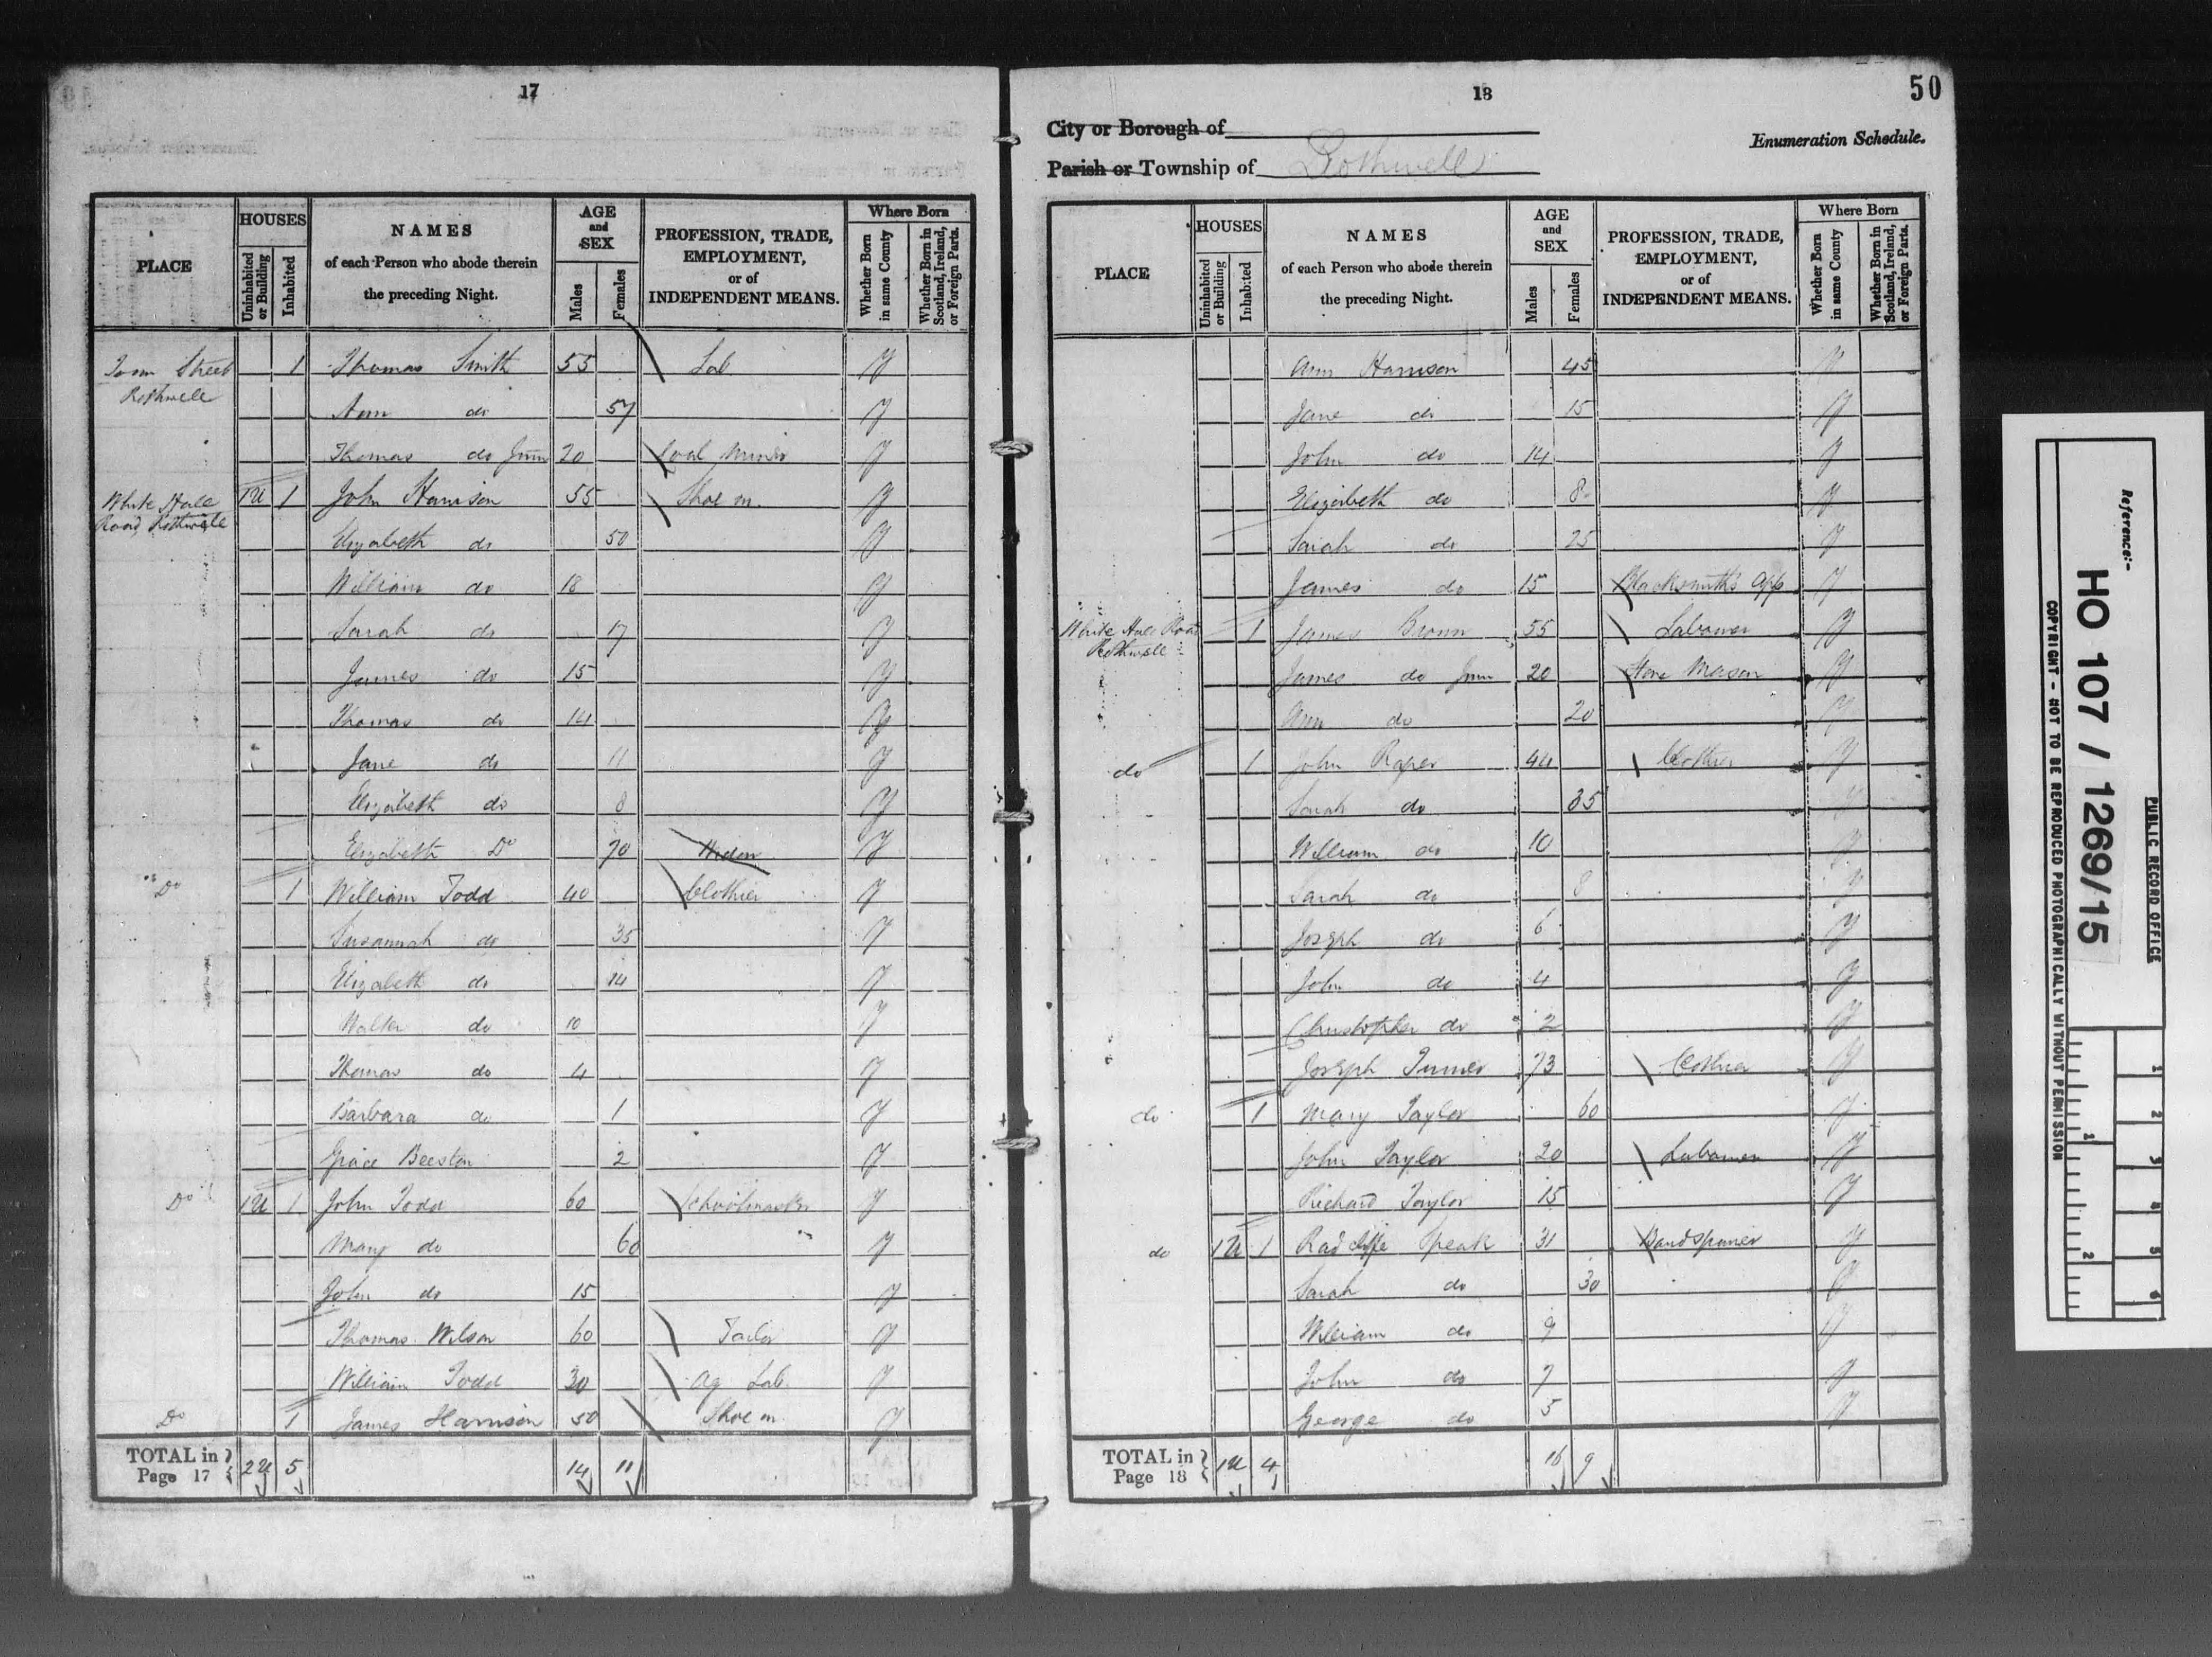 17
PLACE HOUSES Uninhabited or Building Inhabited NAMES of each Person who abode therein the preceding Night. AGE and SEX Males Females PROFESSION, TRADE, EMPLOYMENT, or of INDEPENDENT MEANS. Where Born Whether Born in same County Whether Born in Scotland, Ireland, or Foreign Parts.
Town Street Rothwell 1 Thomas Smith 55 Lab Y
Ann do 57 Y
Thomas do Junr 20 Coal Miner Y
White Hall Road, Rothwell 1U 1 John Harrison 55 Shoe m. Y
Elizabeth do 50 Y
William do 18 Y
Sarah do 17 Y
James do 15 Y
Thomas do 14 Y
Jane do 11 Y
Elizabeth do 8 Y
Elizabeth Do 70 Widow Y
Do 1 William Todd 40 Clothier Y
Susannah do 35 Y
Elizabeth do 14 Y
Walter do 10 Y
Thomas do 4 Y
Barbara do 1 Y
Grace Beeston 2 Y
Do 1U 1 John Todd 60 Schoolmaster Y
Mary do 60 Y
John do 15 Y
Thomas Wilson 60 Tailor Y
William Todd 30 Ag Lab. Y
Do 1 James Harrison 50 Shoe m Y
TOTAL in Page 17 2U 5 14 11
18
50
City or Borough of
Enumeration Schedule.
Parish or Township of Rothwell
PLACE HOUSES Uninhabited or Building Inhabited NAMES of each Person who abode therein the preceding Night. AGE and SEX Males Females PROFESSION, TRADE, EMPLOYMENT, or of INDEPENDENT MEANS. Where Born Whether Born in same County Whether Born in Scotland, Ireland, or Foreign Parts.
Ann Harrison 45 Y
Jane do 15 Y
John do 14 Y
Elizabeth do 8 Y
Sarah do 25 Y
James do 15 Blacksmith's App Y
White Hall Road Rothwell 1 James Brown 55 Labourer Y
James do Junr 20 Stone Mason Y
Ann do 20 Y
do 1 John Raper 44 Clothier Y
Sarah do 35 Y
William do 10 Y
Sarah do 8 Y
Joseph do 6 Y
John do 4 Y
Christopher do 2 Y
Joseph Turner 73 Clothier Y
do 1 Mary Taylor 60 Y
John Taylor 20 Labourer Y
Richard Taylor 15 Y
do 1U 1 Radcliffe Speak 31 Y
Sarah do 30 Y
William do 9 Y
John do 7 Y
George do 5 Y
TOTAL in Page 18 1U 4 16 9
Reference:-
HO 107 / 1269/15
PUBLIC RECORD OFFICE
COPYRIGHT - NOT TO BE REPRODUCED PHOTOGRAPHICALLY WITHOUT PERMISSION
1 2 3 4 5 6
1 2